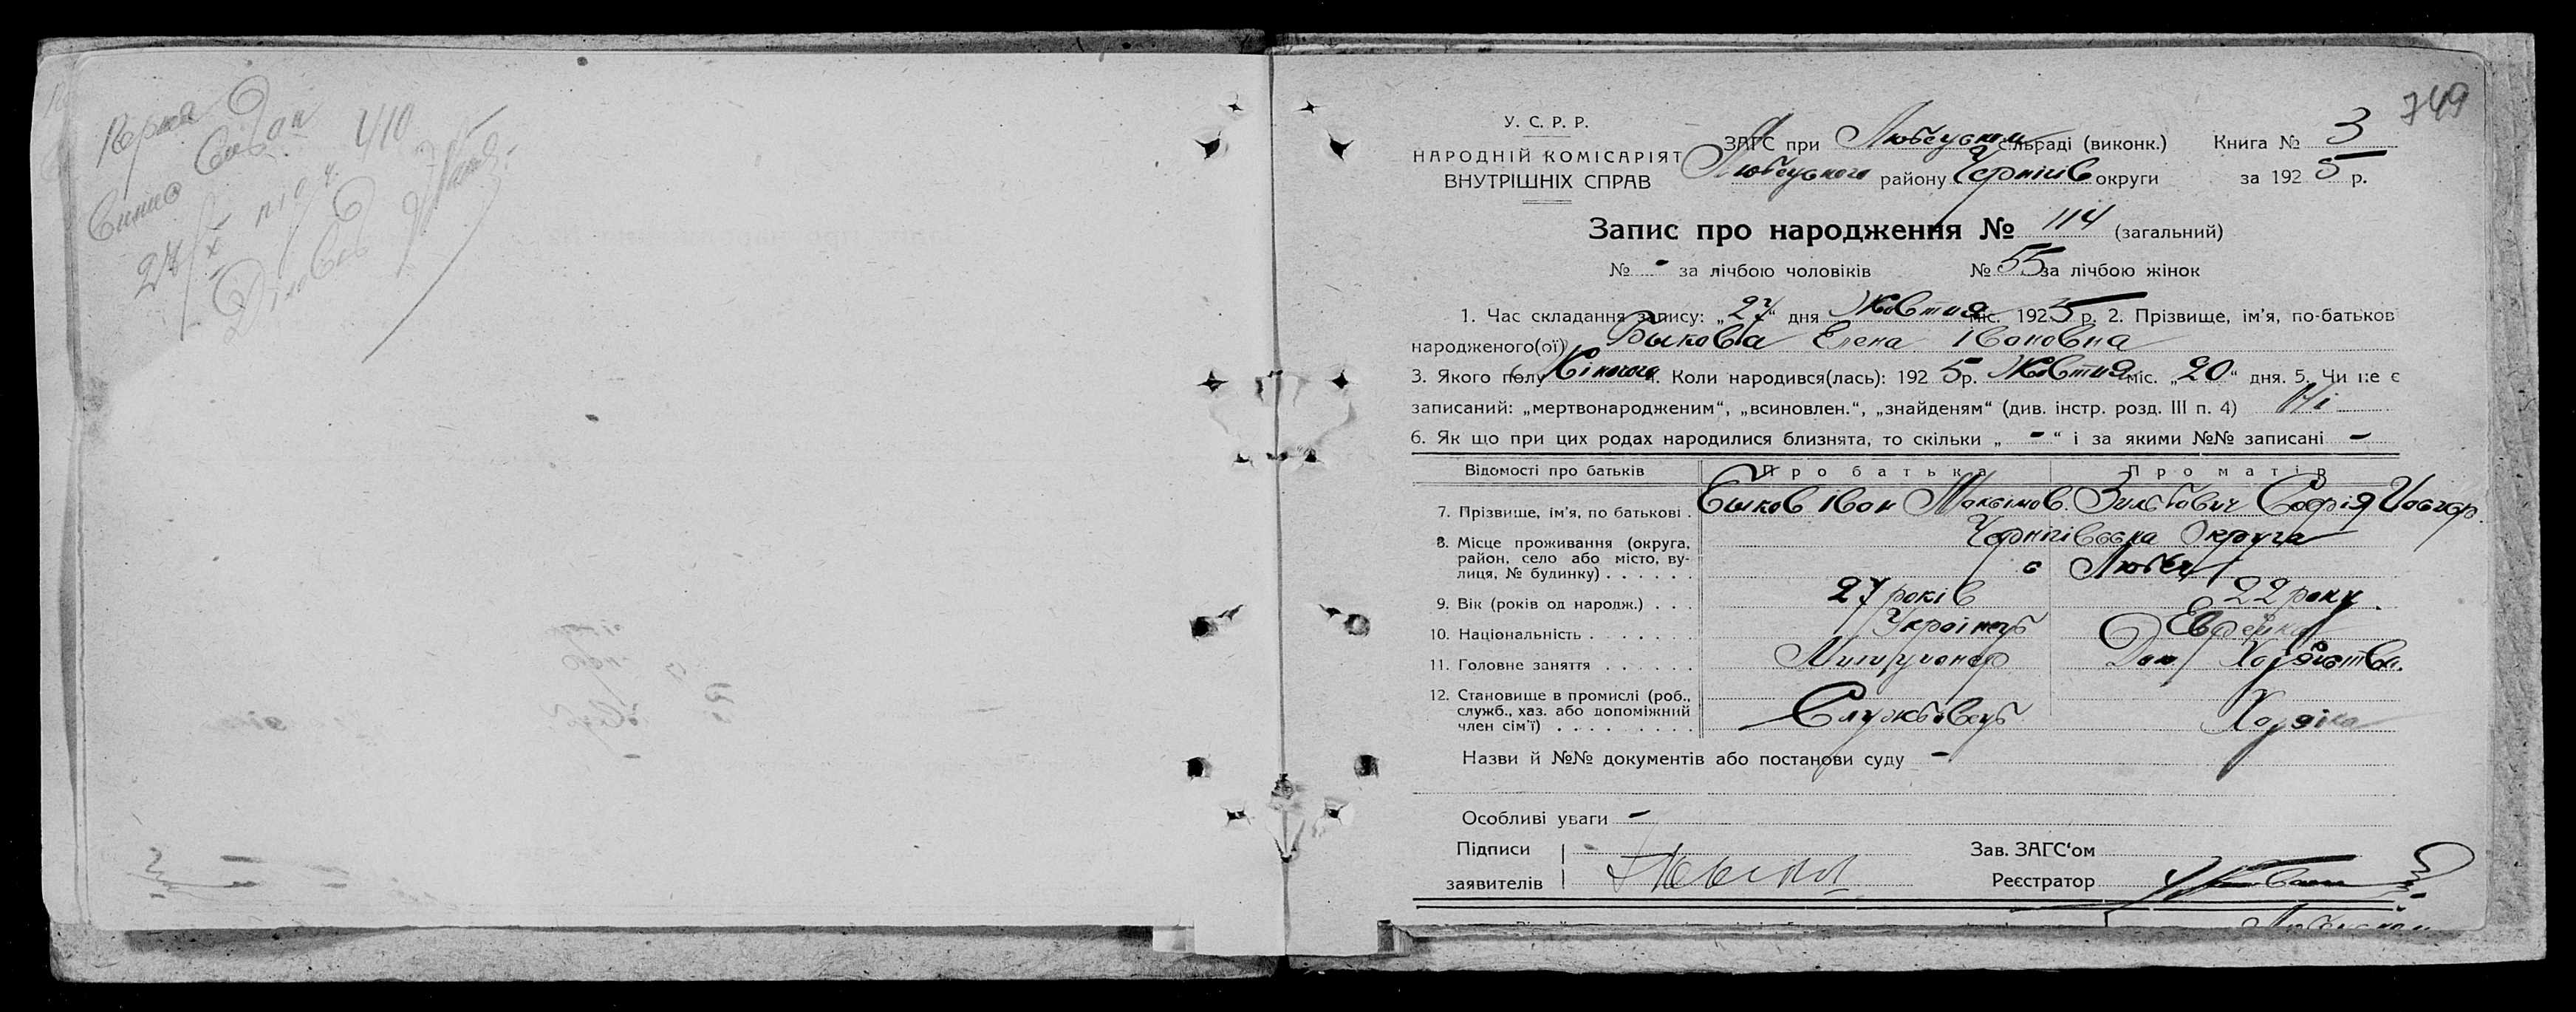 410
749
У. С. Р. Р.
НАРОДНІЙ КОМІСАРІЯТ
ВНУТРІШНІХ СПРАВ
ЗАГС при Любецьком сільраді (виконк.) Книга № 3
Любецького району Чернігів округи за 1925 р.
Запис про народження № 114 (загальний)
№ - за лічбою чоловіків № 55 за лічбою жінок
1. Час складання запису: „27“ дня Жовтня міс. 1925 р. 2. Прізвище, ім’я, по-батьков
народженого(ої) Быкова Елена Івановна
3. Якого полу Жіночого 4. Коли народився(лась): 1925 р. Жовтня міс. „20“ дня. 5. Чи не є
записаний: „мертвонародженим“, „всиновлен.“, „знайденям“ (див. інстр. розд. III п. 4) Ні
6. Як що при цих родах народилися близнята, то скільки „ - “ і за якими №№ записані -
Відомості про батьків Про батька Про матір
7. Прізвище, ім’я, по батькові . Быков Іван Максімов. Софія
8. Місце проживання (округа, район, село або місто, вулиця, № будинку) . . . . . . Чернігівська Округа
с Любеч
9. Вік (років од народж.) . . . 27 років 22 року
10. Національність . . . . . . . Українець Еврейка
11. Головне заняття . . . . . . Милиционер Дом Хозяйства.
12. Становище в промислі (роб., служб., хаз. або допоміжний член сім’ї) . . . . . . . . Службовець Хозяіка
Назви й №№ документів або постанови суду -
Особливі уваги -
Підписи
заявителів
Зав. ЗАГС‘ом
Реєстратор